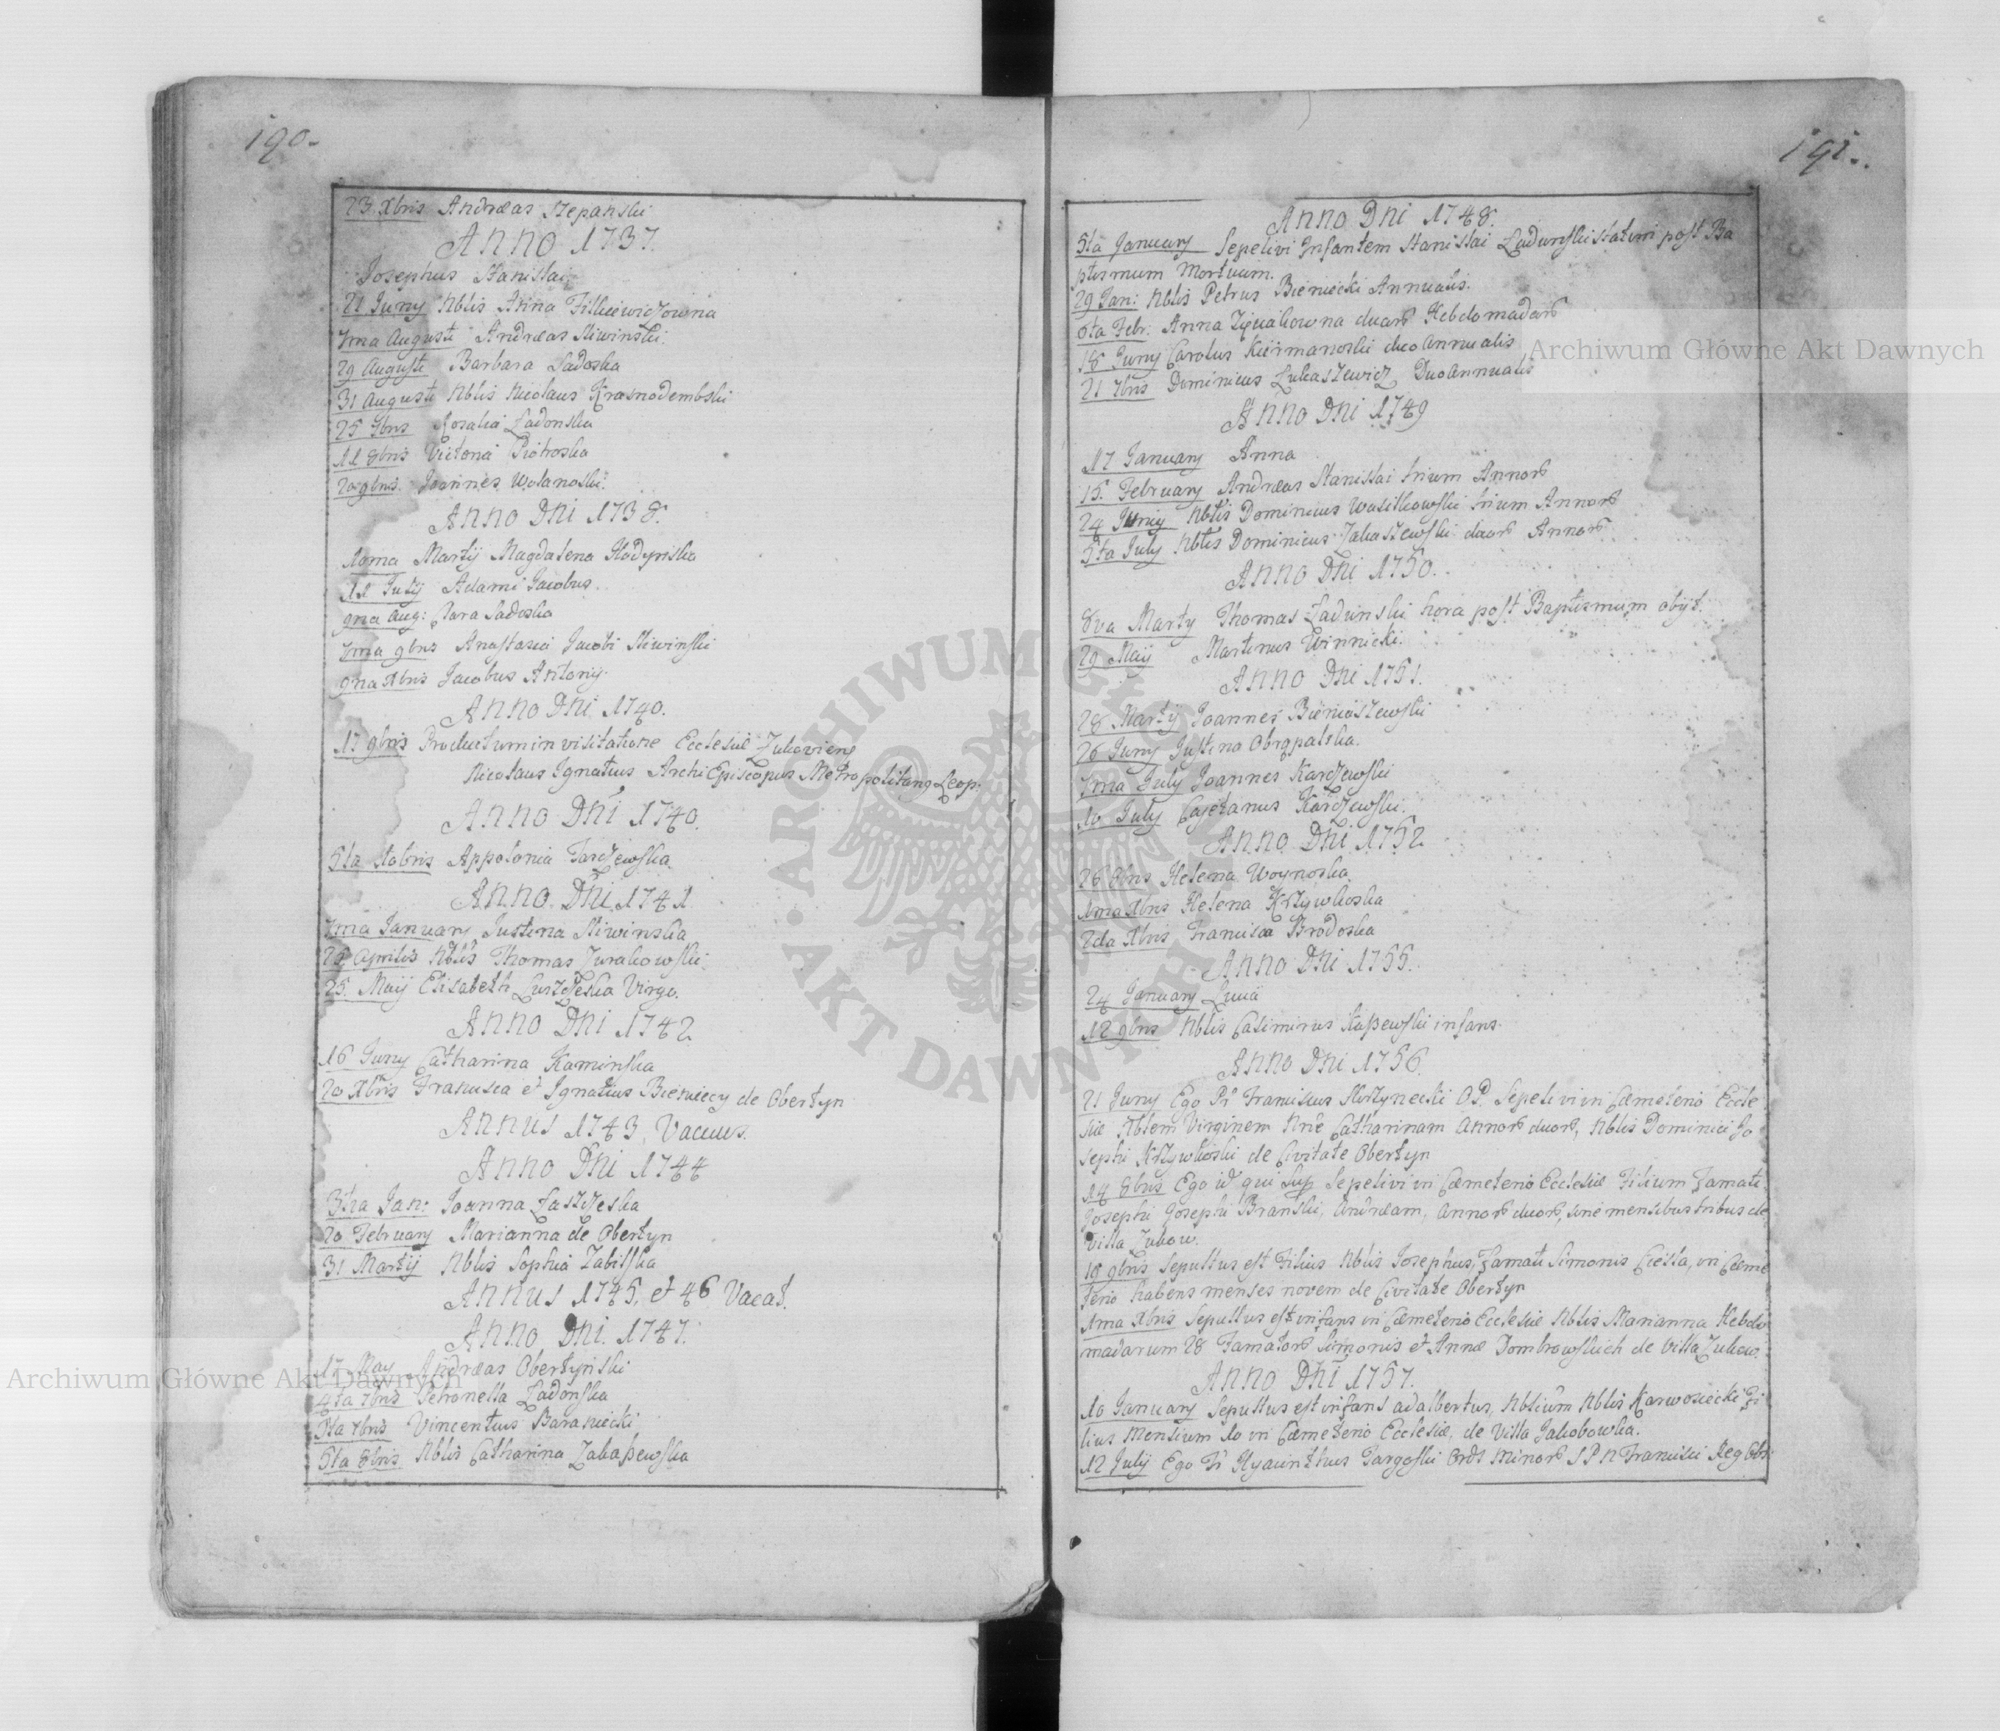 190.
23 Xbris Andreas Stepanski
Anno 1737.
Josephus Stanislai
21 Juny Nblis Anna Filkiewiczowna
7ma Augusti Andreas Sliwinski
29 Augusti Barbara Sadoska
31 Augusti Nblis Nicolaus Krasnodembski
25 7bris Rosalia Ladonska
11 8bris Victoria Piotroska
20 9bris Joannes Wolanoski
Anno Dni 1738.
10ma Martij Magdalena Hodynska
11 July Adami Jacobus
9na Aug: Clara Sadoska
7ma 9bris Anastasia Jacobi Sliwinski
9na Xbris Jacobus Antony
Anno Dni 1740.
17 9bris Productum in visitatione Ecclesiæ Zukoviens
Nicolaus Ignatius Archi Episcopus Metropolitang Leop:
Anno Dni 1740.
5ta Appolonia
Anno Dni 1741
7ma January Justina Sliwinska
22 Aprilis Nblis Thomas Zurakowski
25. Maij Elisabeth Virgo.
Anno Dni 1742
16 Juny Catharina Kaminska
20 Xbris Francisca et Ignatius Bieniecy de Obertyn
Annus 1743 Vacuus.
Anno Dni 1744
3tia Jan: Joanna
20 February Marianna de Obertyn
31 Martij Nblis Sophia Zabilska
Annus 1745, et 46 Vacat.
Anno Dni 1747.
17 May Andreas Obertynski
4ta 7bris Petronella Ladonska
5ta 7bris Vincentius Baraniecki
5ta 8bris Nblis Catharina Zakaszewska
191.
Anno Dni 1748.
5ta January Sepelivi Infantem Stanislai Ladunski statim post Ba
ptismum Mortuum.
29 Jan: Nblis Petrus Bieniecki Annualis.
6ta Febr: Anna duar Hebdomadar
18 Juny Carolus Kiermanoski duo Annualis
21 7bris Dominicus Lukaszewicz Duo Annualis
Anno Dni 1749
17 January Anna
15. February Andreas Stanislai trium Annor
24 Juny Nblis Dominicus Wasilkowski trium Annor
5ta July Nblis Dominicus Zakaszewski duor Annor
Anno Dni 1750.
8va Marty Thomas Ladunski hora post Baptismum obijt.
29 Maij Martinus Winnicki.
Anno Dni 1751.
28 Martij Joannes Bienioszewski
26 Juny Justina Obrąpalska.
7ma July Joannes Karczewski
10 July Cajetanus Karczewski.
Anno Dni 1752
26 8bris Helena Woynoska
1ma Xbris Helena Krzywkoska
2da Xbris Francisca Brodoska
Anno Dni 1755.
24 January Lucia
12 9bris Nblis Casimirus infans.
Anno Dni 1756.
21 Juny Ego Pr Franciscus Skrzynecki O P. Sepelivi in Cæmeterio Eccle
siæ Nblem Virginem Nne Catharinam Annor duor, Nblis Dominici Jo
sephi Krzywkoski de Civitate Obertyn
14 8bris Ego id qui sup Sepelivi in Cæmeterio Ecclesiæ Filium Famati
Josephi Josephi Branski, Andream, Annor duor, sine mensibus tribus de
Villa Zukow.
18 9bris Sepultus est Filius Nblis Josephus, Famati Simonis Ciesla, in Cæme
terio habens menses novem de Civitate Obertyn
1ma Xbris Sepultus est infans in Cæmeterio Ecclesiæ Nblis Marianna Hebdo
madarum 28 Famator Simonis et Annæ Dombrowskich de Villa Zukow.
Anno Dni 1757.
10 January Sepultus est infans adalbertus, Nblium Nblis Karwosiecki Fi
lius Mensium 10 in Cæmeterio Ecclesiæ, de Villa Jakobowka.
12 July Ego Fr Hyacinthus Targoski Ords Minor S P N Francisci Reg Obs
Archiwum Główne Akt Dawnych
Archiwum Główne Akt Dawnych
ARCHIWUM GŁÓWNE AKT DAWNYCH